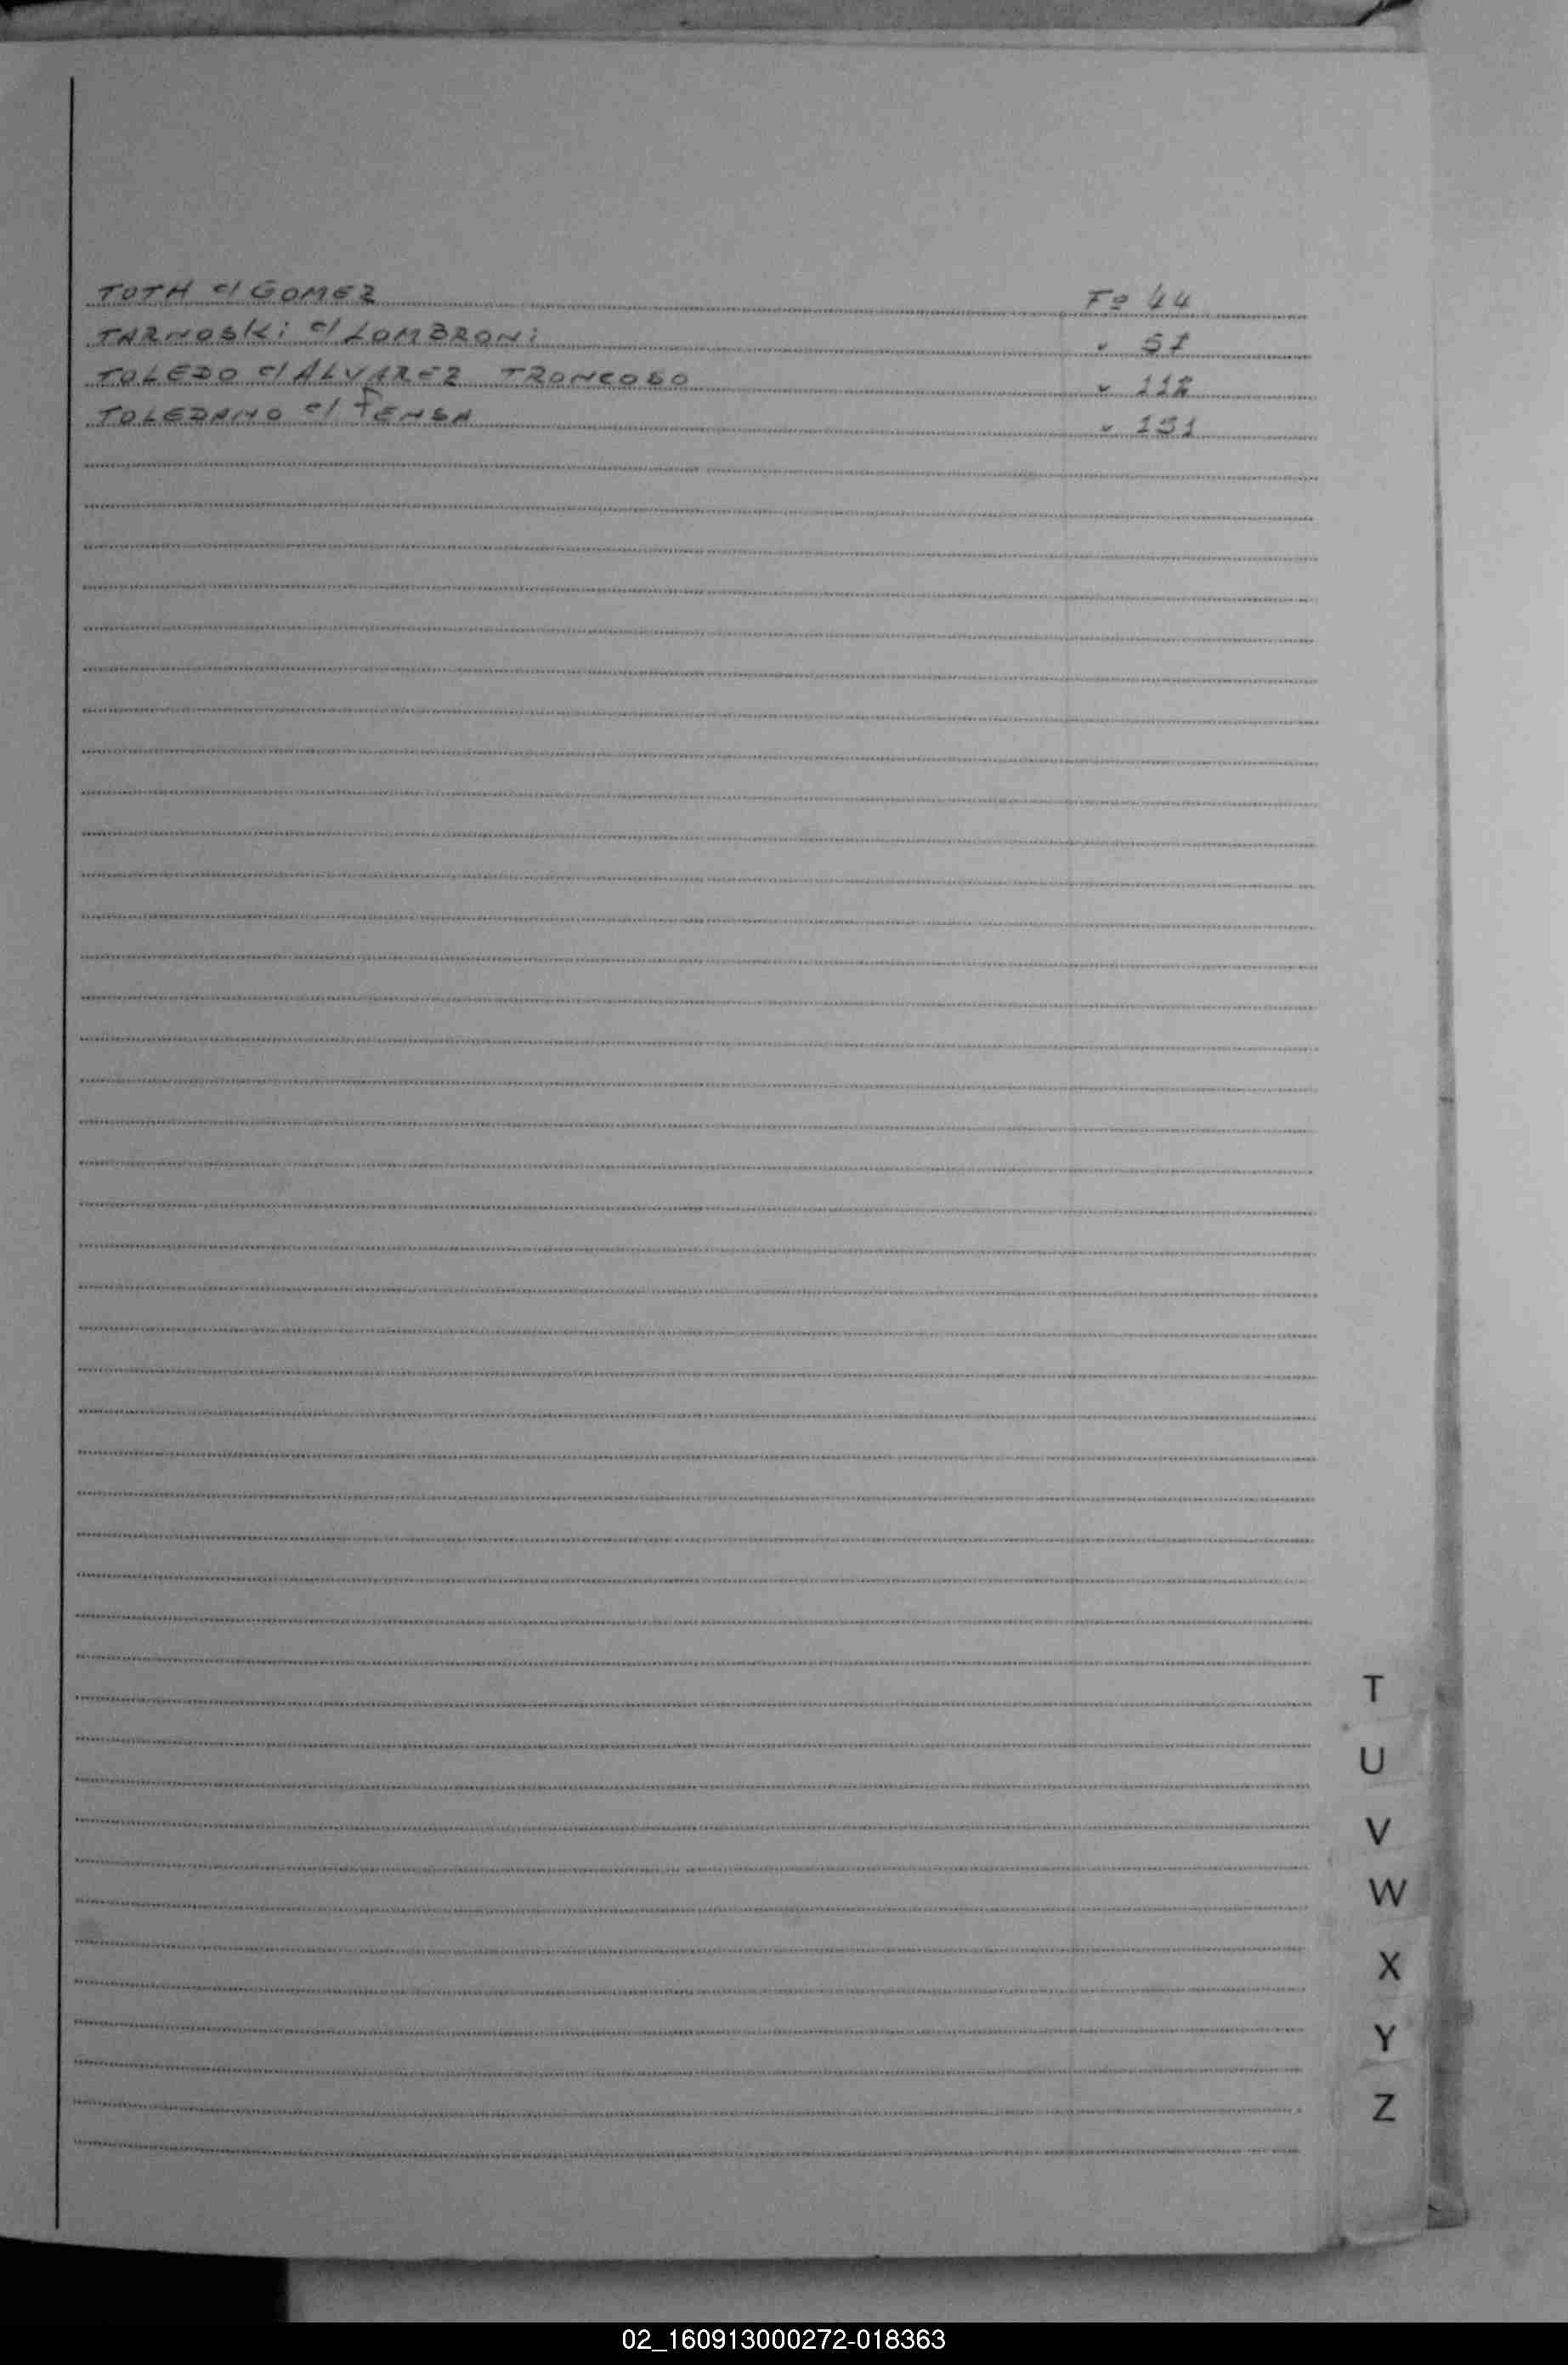 TOTH c/ GOMEZ Fº 44
TARNOSKi c/ LOMBRONi " 51
TOLEDO c/ ALVAREZ TRONCOSO " 112
TOLEDANO c/ " 151
T
U
V
W
X
Y
Z
02_160913000272-018363